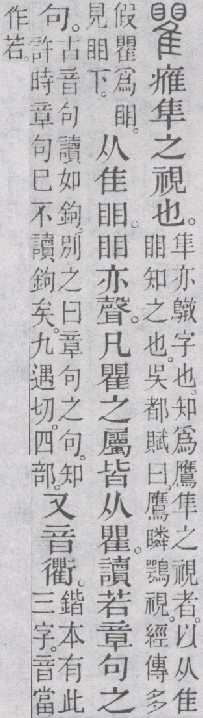 瞿䧹隼之視也。
隼亦字也。知爲鷹隼之視者。以从隹
䀠知之也。吳都賦曰。鷹瞵鶚視。經傳多
假瞿爲䀠。
見䀠下。
从隹䀠。䀠亦聲。凡瞿之屬皆从瞿。讀若章句之
句。
古音句讀如鉤。別之曰章句之句。知
許時章句已不讀鉤矣。九遇切。四部。
又音衢。
鍇本有此
三字。音當
作若。